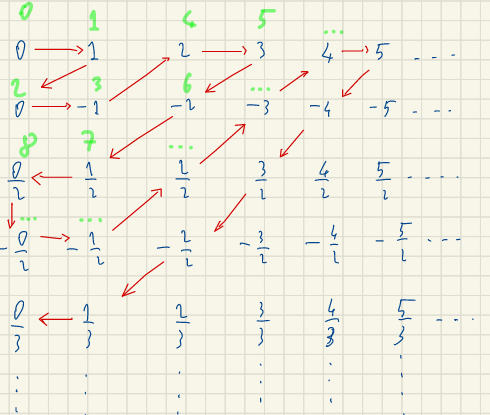 0 1 4 5 ...
0 1 2 3 4 5 ...
2 3 6 ...
0 -1 -2 -3 -4 -5 ...
8 7 ...
0/2 1/2 2/2 3/2 4/2 5/2 ....
... ...
-0/2 -1/2 -2/2 -3/2 -4/2 -5/2 ...
0/3 1/3 2/3 3/3 4/3 5/3 ...
⋮ ⋮ ⋮ ⋮ ⋮ ⋮